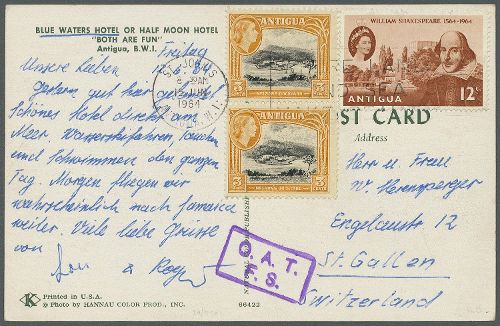 BLUE WATERS HOTEL OR HALF MOON HOTEL
"BOTH ARE FUN"
Antigua, B.W.I.
Freitag
Unsere Lieben
Gestern gut hier
Schönes Hotel direkt am
Meer. Wasserskifahren,
und Schwimmen den ganzen
Tag. Morgen fliegen wir
wahrscheinlich nach Jamaica
weiter. Viele liebe Grüsse
von
& Roger
Printed in U.S.A.
© Photo by HANNAU COLOR PROD., INC.
66422
ST. JOHNS
AM
JUN
1964
ANTIGUA
3 CENTS
ANTIGUA
3 CENTS
WILLIAM SHAKESPEARE 1564-1964
ANTIGUA 12c
SEA
POST CARD
Address
Herr u. Frau
W.
Engelaustr 12
St. Gallen
Switzerland
O.A.T.
F.S.
K